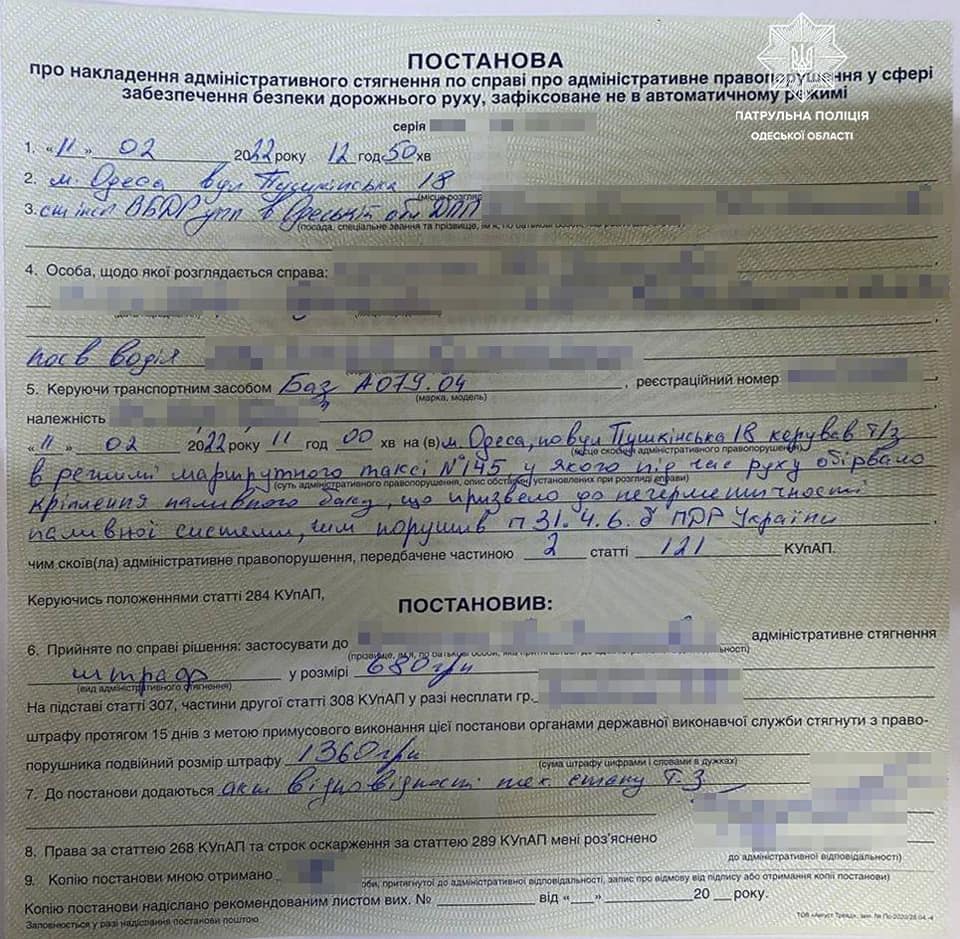 ПОСТАНОВА
про накладення адміністративного стягнення по справі про адміністративне правопорушення у сфері
забезпечення безпеки дорожнього руху, зафіксоване не в автоматичному режимі
ПАТРУЛЬНА ПОЛІЦІЯ
ОДЕСЬКОЇ ОБЛАСТІ
серія
1. «11» 02 2022 року 12 год 50 хв
2. м. Одеса вул Пушкінська 18
(місце розгляду
3. ст інсп ВБДР упп в Одеській обл ДПП
(посада, спеціальне звання та прізвище, ім'я, по батькові
4. Особа, щодо якої розглядається справа:
посв водія
5. Керуючи транспортним засобом Баз А079.04, реєстраційний номер
(марка, модель)
належність
«11» 02 2022 року 11 год 00 хв на (в) м. Одеса, по вул Пушкінська 18 керував Т/З
(місце скоєння адміністративного правопорушення)
в режимі маршрутного таксі №145, у якого під час руху обірвало
(суть адміністративного правопорушення, опис обставин, установлених при розгляді справи)
кріплення паливного баку, що призвело до негерметичності
паливної системи, чим порушив п 31.4.6.б ПДР України
чим скоїв(ла) адміністративне правопорушення, передбачене частиною 2 статті 121 КУпАП.
Керуючись положеннями статті 284 КУпАП,
ПОСТАНОВИВ:
6. Прийняте по справі рішення: застосувати до адміністративне стягнення
(прізвище, ім'я, по батькові особи, яка притягається до адміністративної відповідальності)
штраф у розмірі 680 грн
(вид адміністративного стягнення)
На підставі статті 307, частини другої статті 308 КУпАП у разі несплати гр.
штрафу протягом 15 днів з метою примусового виконання цієї постанови органами державної виконавчої служби стягнути з право-
порушника подвійний розмір штрафу 1360 грн
(сума штрафу цифрами і словами в дужках)
7. До постанови додаються акт відповідност. тех. стану Т.З.
8. Права за статтею 268 КУпАП та строк оскарження за статтею 289 КУпАП мені роз'яснено
до адміністративної відповідальності)
9. Копію постанови мною отримано
оби, притягнутої до адміністративної відповідальності, запис про відмову від підпису або отримання копії постанови)
Копію постанови надіслано рекомендованим листом вих. № від «__» 20 __ року.
Заповнюється у разі надіслання постанови поштою
ТОВ «Август Трейд», зам. № По-2020/28.04.-4